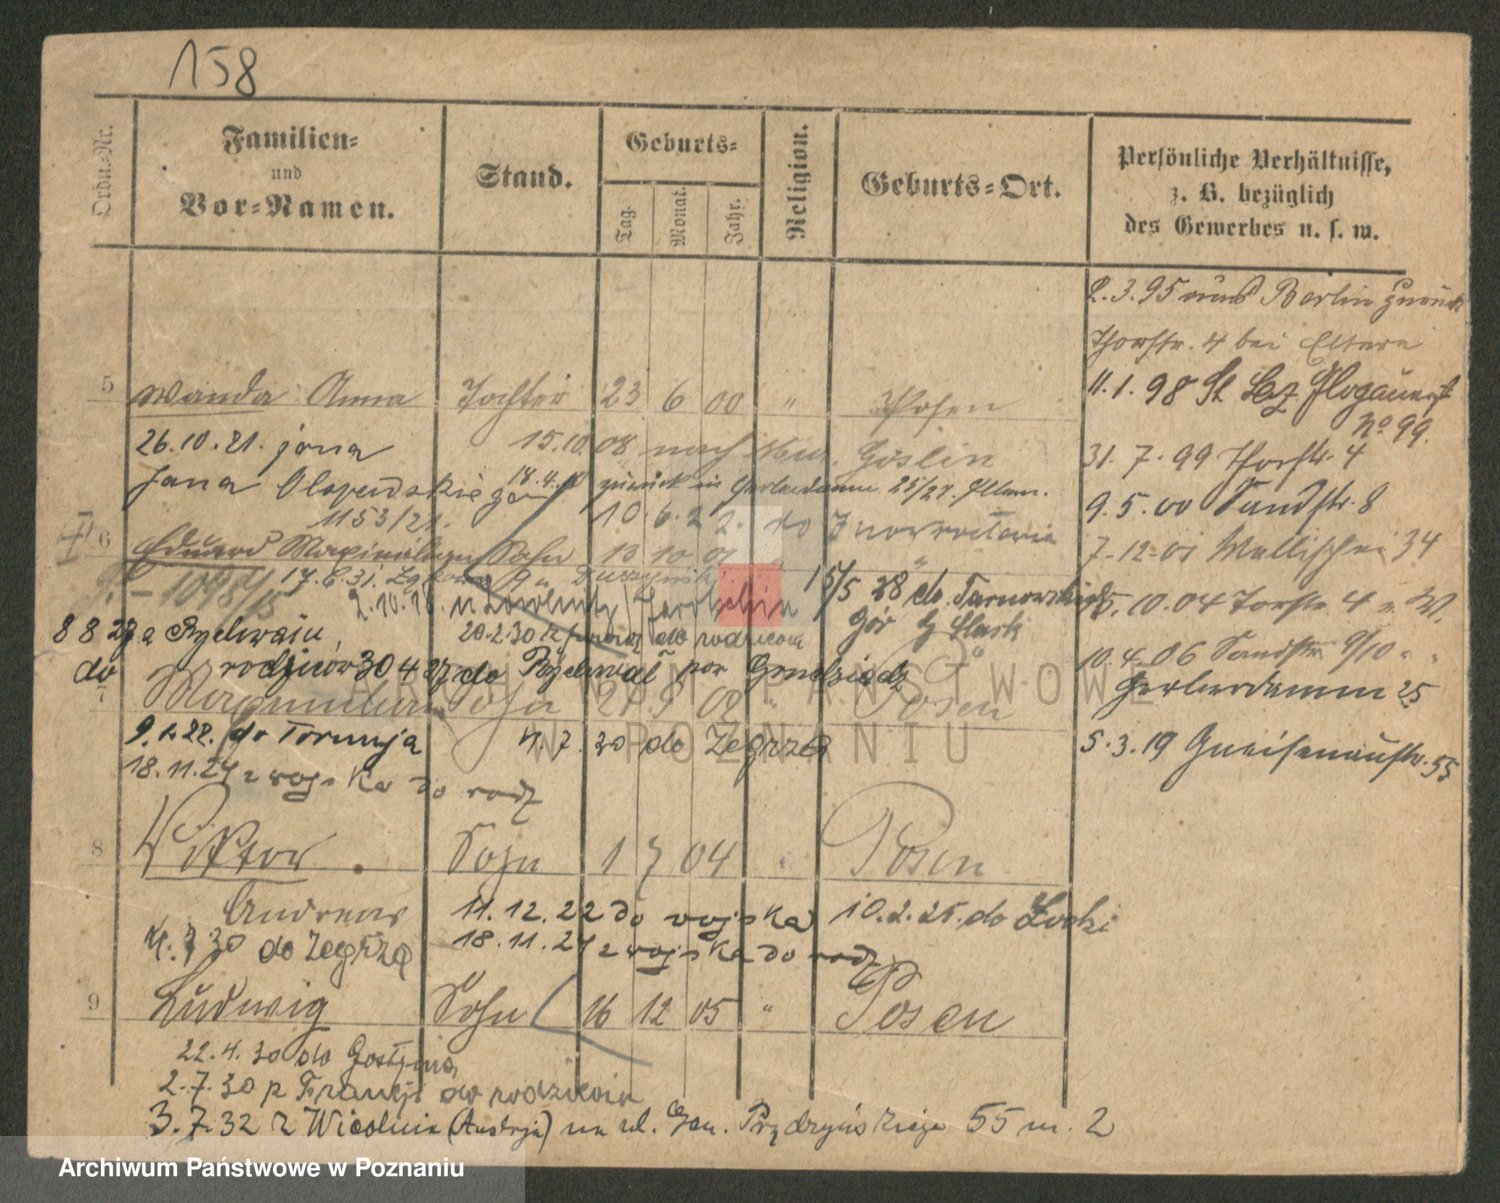 158
Ordn.-Nr.
Familien-
und
Vor-Namen.
Stand.
Geburts-
Tag.
Monat.
Jahr.
Religion.
Geburts-Ort.
Persönliche Verhältnisse,
z. B. bezüglich
des Gewerbes u. s. w.
2.3.95 aus Berlin zurück
Thorstr. 4 bei Eltern
11.1.98 St Lz Glogauerst
No 99.
31.7.99 Thorstr. 4
9.5.00 Sandstr. 8
7.12.01 Wallischei 34
15.10.04 Torstr. 4 W.
10.4.06 Sandstr. 9/10
Gerberdamm 25
5.3.19 Gneisenaustr. 55
5 Wanda Anna Tochter 23 6 00 " Posen
26.10.21. żona 15.10.08 nach Mur. Goslin
Jana zurück in Gerberdamm 25/27
1153/21. 10.6.22. do Inowrocławia
6 Eduard Sohn 13 10 01 "
17.6.31. 5/5 28 do Tarnowskich
2.10.18. Jarotschin Gór G Śląsk
8 8 27 z 20.2.30 do rodzicom
do rodziców 30 4 27 do por Grudziądz
7 Sohn 02 " Posen
9.1.22. do Torunia 4.7.30 do Zegrza
18.11.24 z wojska do rodz
8 Viktor Sohn 1 7 04 " Posen
Andreas 11.12.22 do wojska 10.2.25. do Łodzi
4.7 30 do Zegrza 18.11.24 z wojska do rodz
9 Ludwig Sohn 16 12 05 " Posen
22.4.30 do Gostynia
2.7.30 z Francji do rodziców
3.7.32 z Wiednia (Austrja) na ul. Gen. Prądzyńskiego 55 m. 2
ARCHIWUM PAŃSTWOWE
W POZNANIU
Archiwum Państwowe w Poznaniu